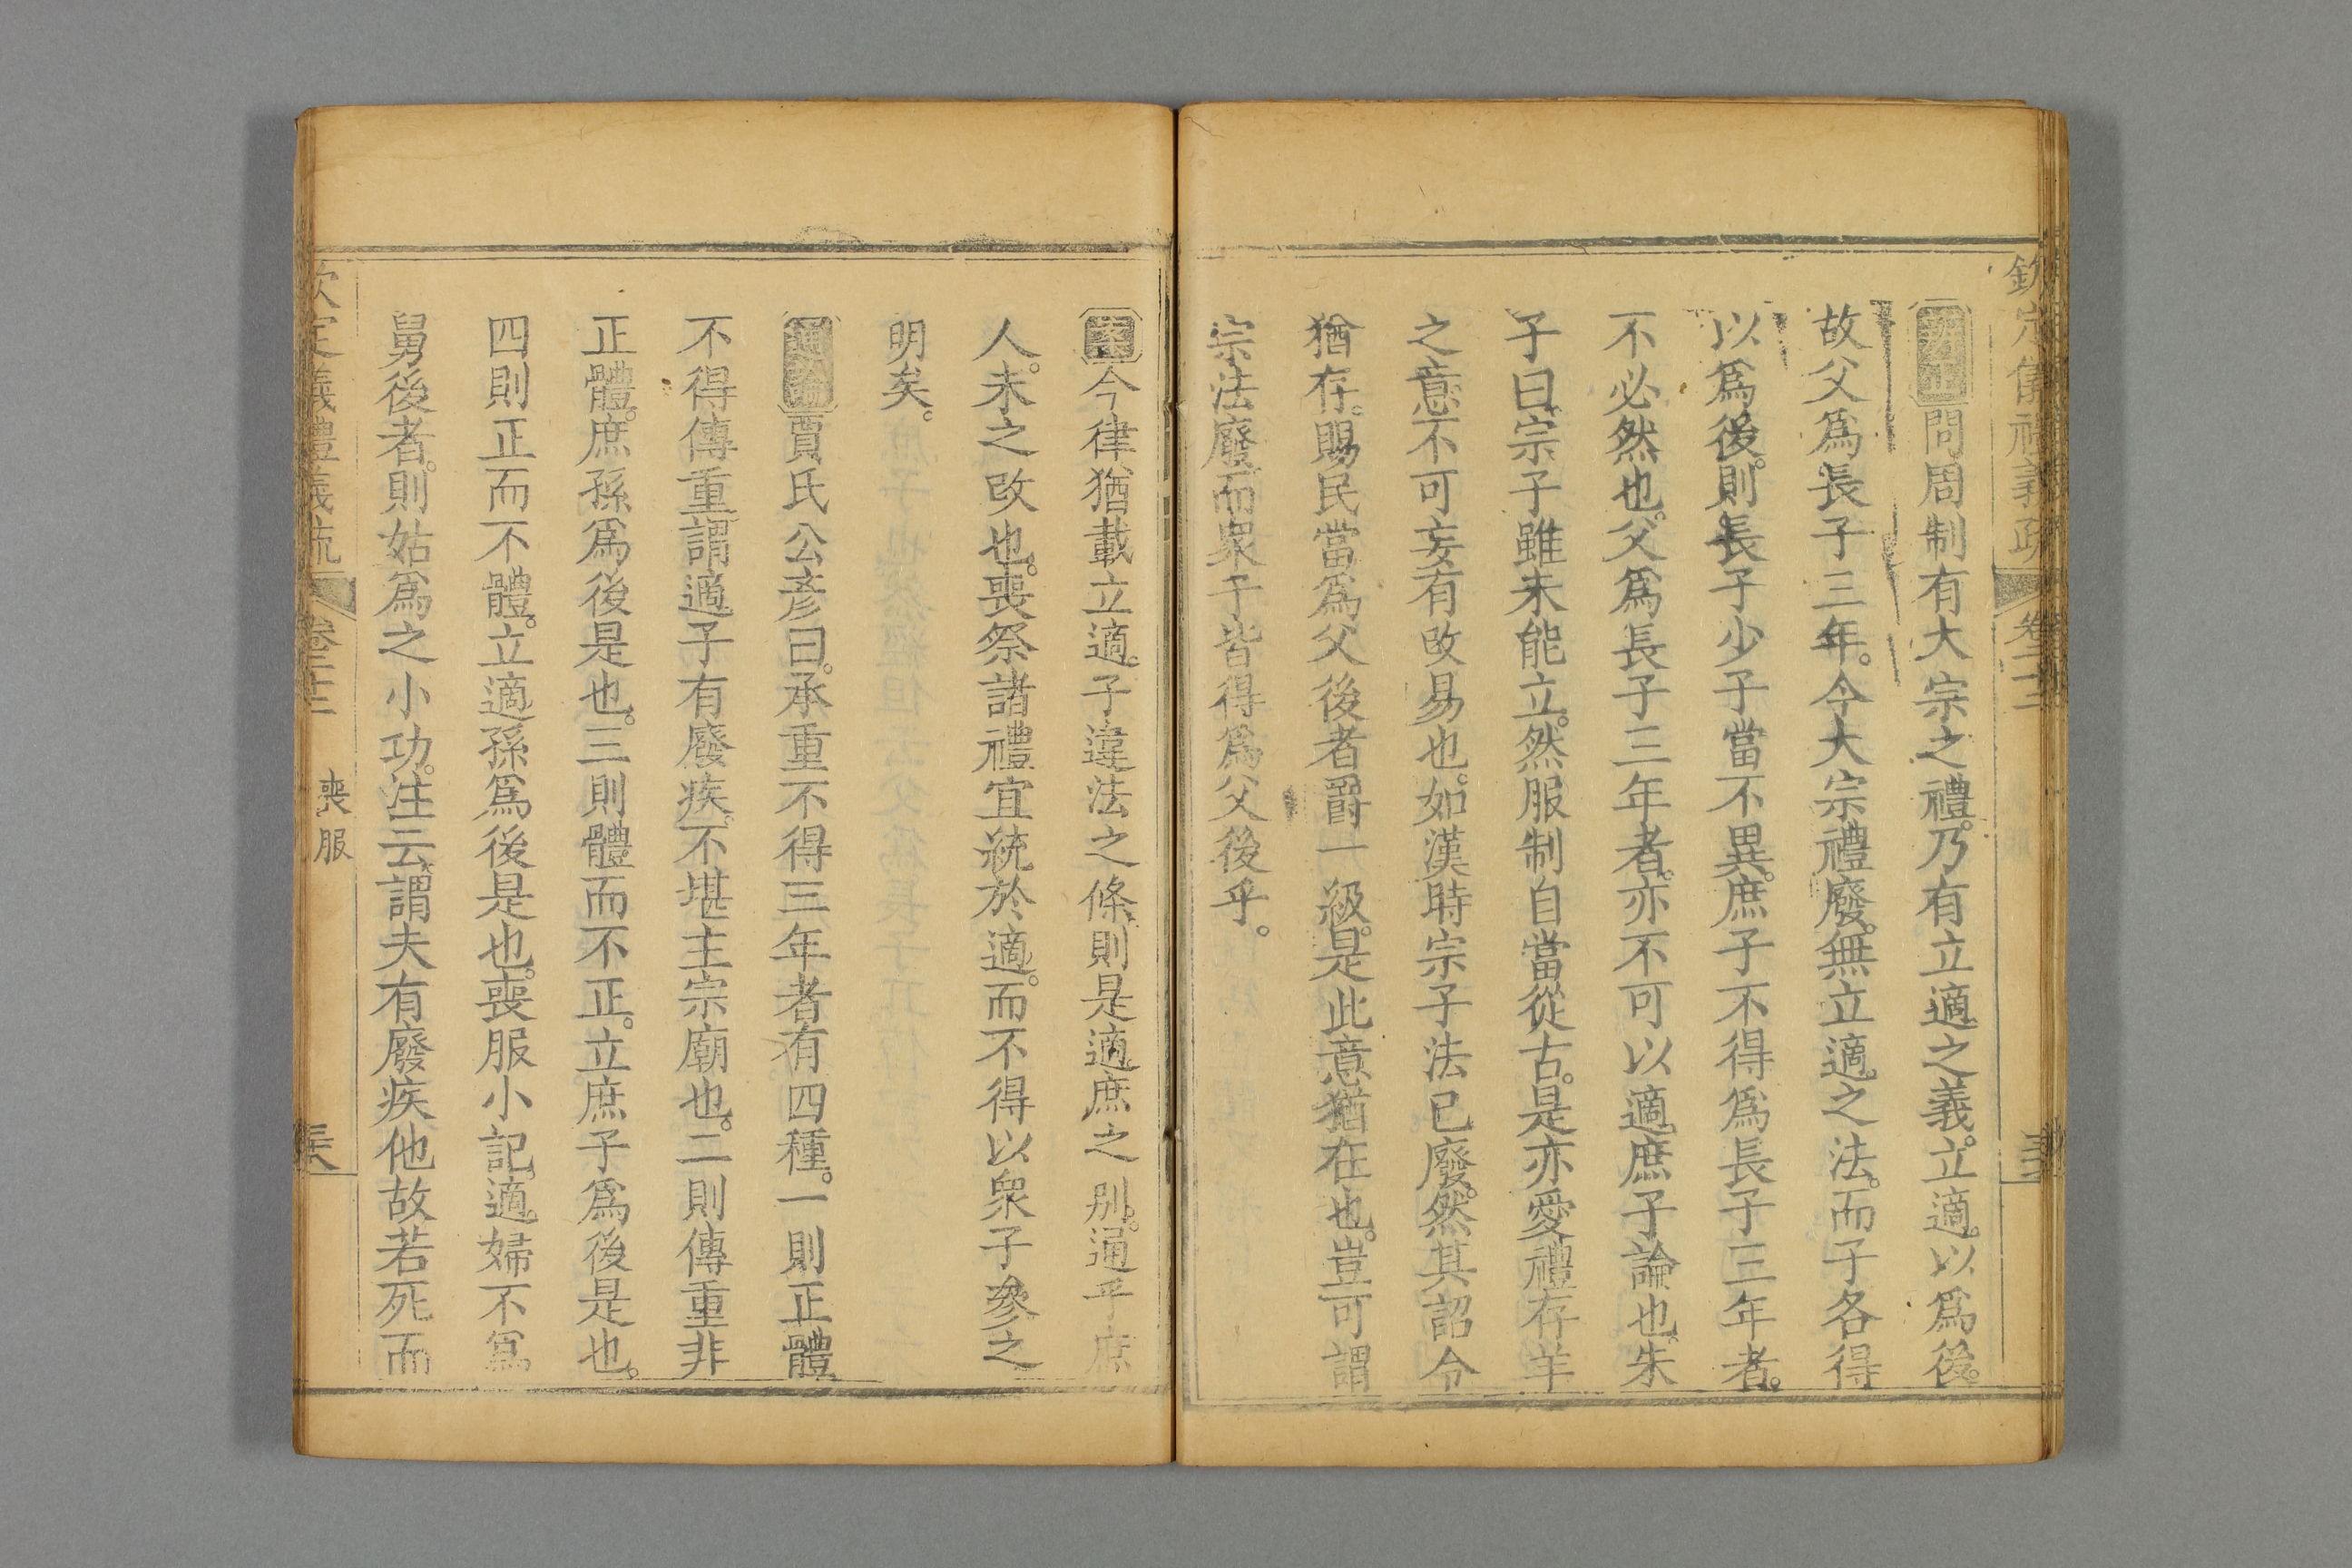 欽定儀禮義疏 卷二十二
辨正問周制有大宗之禮。乃有立適之義。立適。以爲後。
故父爲長子三年。今大宗禮廢。無立適之法。而子各得
以爲後。則長子少子當不異。庶子不得爲長子三年者。
不必然也。父爲長子三年者。亦不可以適庶子論也。朱
子曰。宗子雖未能立。然服制自當從古。是亦愛禮存羊
之意。不可妄有改易也。如漢時宗子法已廢。然其詔令
猶存。賜民當爲父後者爵一級。是此意猶在也。豈可謂
宗法廢而衆子皆得爲父後乎。
案今律猶載立適。子違法之條。則是適庶之別。通乎庶
人。未之改也。喪祭諸禮宜統於適。而不得以衆子參之
明矣。
通論賈氏公彥曰。承重不得三年者有四種。一則正體
不得傳重。謂適子有廢疾。不堪主宗廟也。二則傳重非
正體。庶孫爲後是也。三則體而不正。立庶子爲後是也。
四則正而不體。立適孫爲後是也。喪服小記。適婦不爲
舅後者。則姑爲之小功。注云。謂夫有廢疾他故若死而
欽定儀禮義疏 卷二十二 喪服